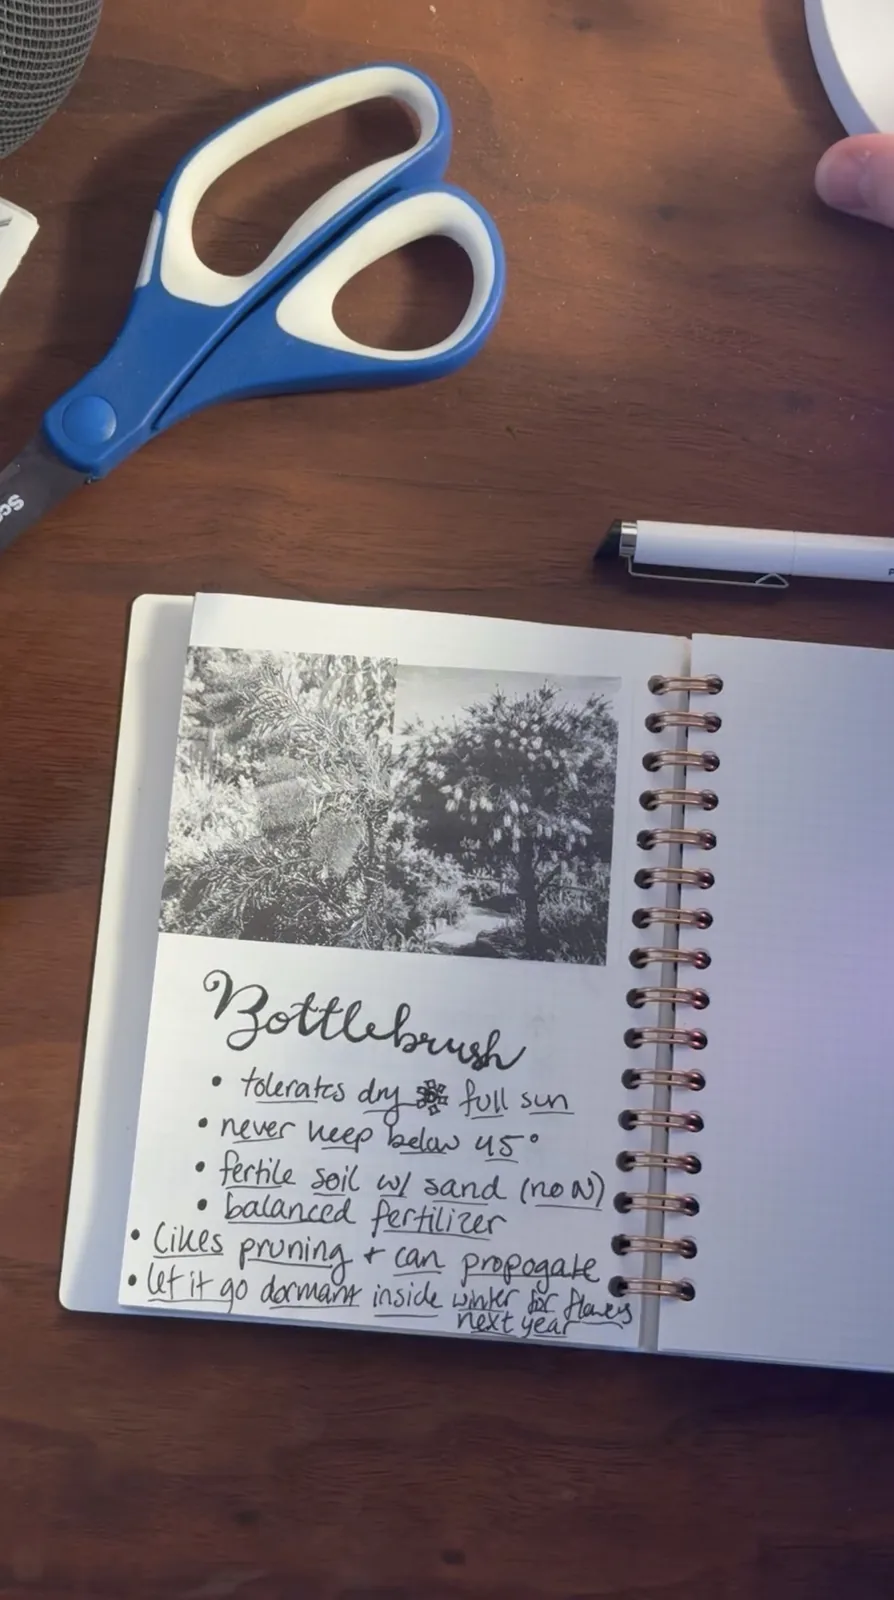 Bottlebrush
• tolerates dry full sun
• never keep below 45°
• fertile soil w/ sand (no N)
• balanced fertilizer
• Likes pruning + can propogate
• let it go dormant inside winter for flowers
next year